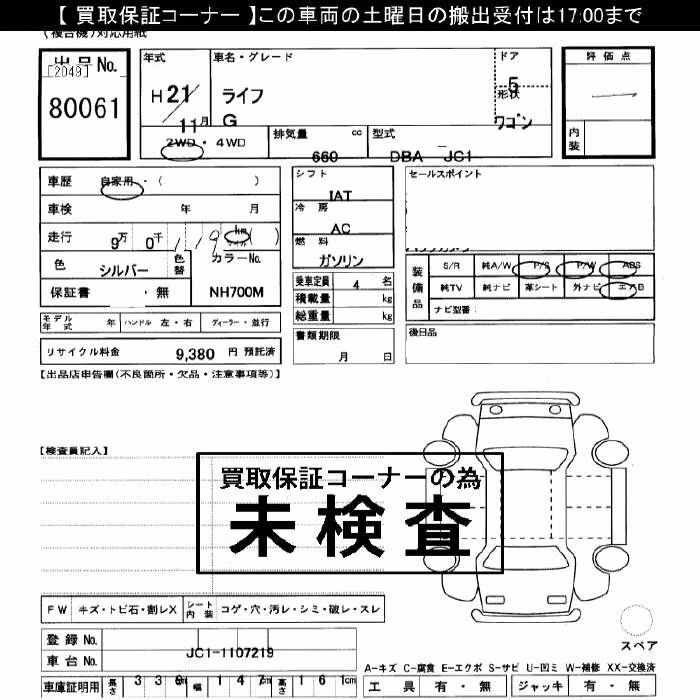 【 買取保証コーナー 】この車両の土曜日の搬出受付は17:00まで
(複合機)対応用紙
出品No.
[2049]
80061
年式
H 21/11月
車名・グレード
ライフ
G
ドア
5
形状
ワゴン
評価点
内装
2WD ・ 4WD
排気量 cc
660
型式
DBA JC1
車歴 自家用・( )
車検 年 月
走行 9万 0千 119 km マイル ( )
色 シルバー 色替 カラーNo.
保証書 ・ 無 NH700M
シフト
IAT
冷房
AC
燃料
ガソリン
乗車定員 4 名
積載量 kg
総重量 kg
書類期限
月 日
セールスポイント
装備品
S/R 純A/W P/S P/W ABS
純TV 純ナビ 革シート 外ナビ エアB
ナビ型番:
後日品
モデル年式 年 ハンドル 左・右 ディーラー・並行
リサイクル料金 9,380 円 預託済
【出品店申告欄(不良箇所・欠品・注意事項等)】
【検査員記入】
買取保証コーナーの為
未検査
FW キズ・トビ石・割レX シート内装 コゲ・穴・汚レ・シミ・破レ・スレ
登録No.
車台No. JC1-1107219
車庫証明用 長さ 339cm 幅 147cm 高さ 161cm
スペア
A-キズ C-腐食 E-エクボ S-サビ U-凹ミ W-補修 XX-交換済
工具 有・無 ジャッキ 有・無